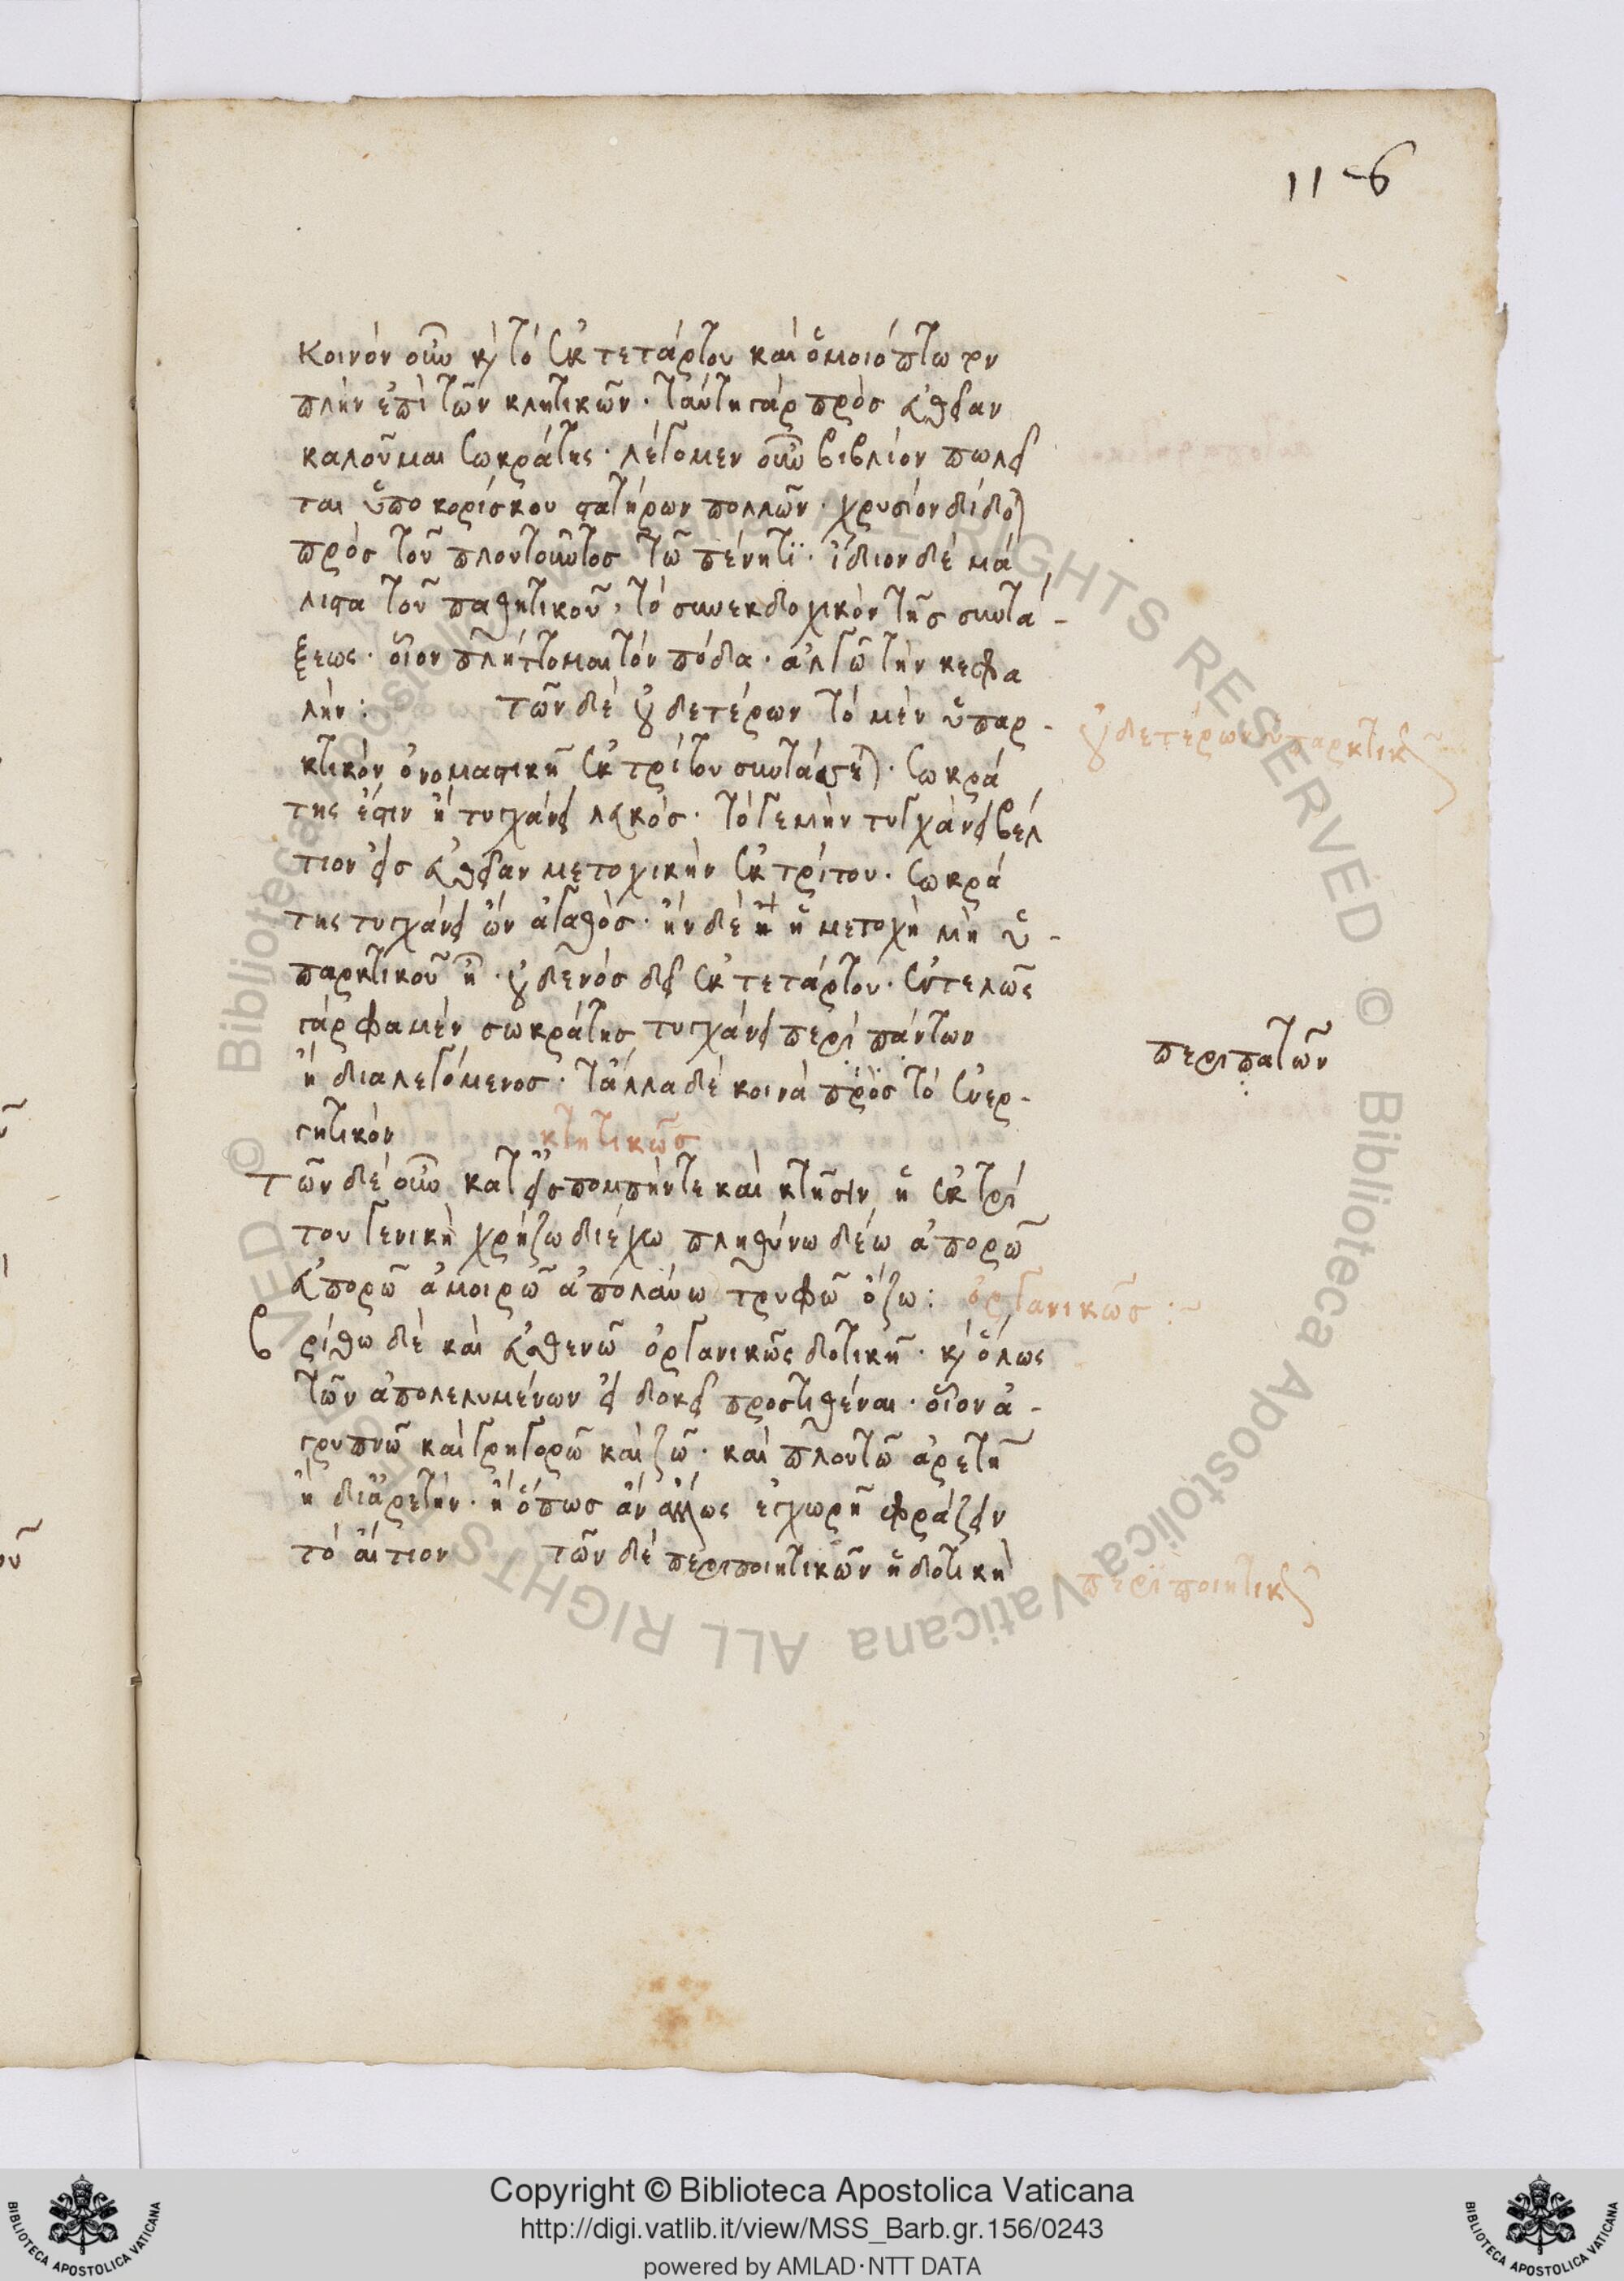 116
κοινὸν οὖν κὶ τὸ ἐκ τετάρτου καὶ ὁμοιόπτωτον
πλὴν ἐπὶ τῶν κλητικῶν· ταύτη γὰρ πρὸς εὐθεῖαν
καλοῦμαι Σωκράτης· λέγομεν οὖν βιβλίον πωλεῖ
ται ὑπο κορίσκου στατήρων πολλῶν· χρυσίον δίδοται
πρὸς τοῦ πλουτοῦντος τῶ πένητϊ· ἴδιον δὲ μά
λιστα τοῦ παθητικοῦ, τὸ συνεκδοχικὸν τῆς συντά-
ξεως· οἷον πλήττομαι τὸν πόδα· ἀλγῶ τὴν κεφα
λήν: τῶν δὲ οὐδετέρων τὸ μὲν ὑπαρ-
κτικὸν ὀνομαστικῆ ἐκ τρίτου συντάσσεται· Σωκρά
της ἐστιν ἢ τυγχάνει λευκός· τό γε μὴν τυγχάνει βέλ
τιον εἰς εὐθεῖαν μετοχικὴν ἐκ τρίτου· Σωκρά
της τυγχάνει ὢν ἀγαθός· ἢν δὲ ἡ μετοχὴ μὴ ὑ-
παρκτικοῦ ᾖ· οὐδενὸς δεῖ ἐκ τετάρτου· ἐντελῶς
γάρ φαμὲν σωκράτης τυγχάνει περὶ πάντων
ἢ διαλεγόμενος· τἄλλα δὲ κοινὰ πρὸς τὸ ἐνερ-
γητικόν κτητικῶς
Τῶν δὲ οὖν κατ εἰσπομπήν τε καὶ κτῆσιν ἡ ἐκ τρί
του γενικὴ χρήζω διέχω πληθύνω δέω ἀπορῶ
εὐπορῶ ἀμοιρῶ ἀπολαύω τρυφῶ ὄζω: ὀργανικῶς:~
Βρίθω δὲ καὶ εὐθενῶ ὀργανικῶς δοτικῆ· κὶ ὅλως
τῶν ἀπολελυμένων εἰ δοκεῖ προστιθέναι· οἷον ἀ-
γρυπνῶ καὶ γρηγορῶ καὶ ζῶ· καὶ πλουτῶ ἀρετῆ
ἢ δι' ἀρετήν· ἢ ὅπως ἂν ἄλλως ἐγχωρῆ φράζειν
τὸ αἴτιον τῶν δὲ περιποιητικῶν ἡ δοτικὴ
οὐδετέρων ὑπαρκτικῶν
περιπατῶν
περιποιητικῶν
Copyright © Biblioteca Apostolica Vaticana
http://digi.vatlib.it/view/MSS_Barb.gr.156/0243
powered by AMLAD·NTT DATA
BIBLIOTECA APOSTOLICA VATICANA
BIBLIOTECA APOSTOLICA VATICANA
© Biblioteca Apostolica Vaticana ALL RIGHTS RESERVED © Biblioteca Apostolica Vaticana ALL RIGHTS RESERVED